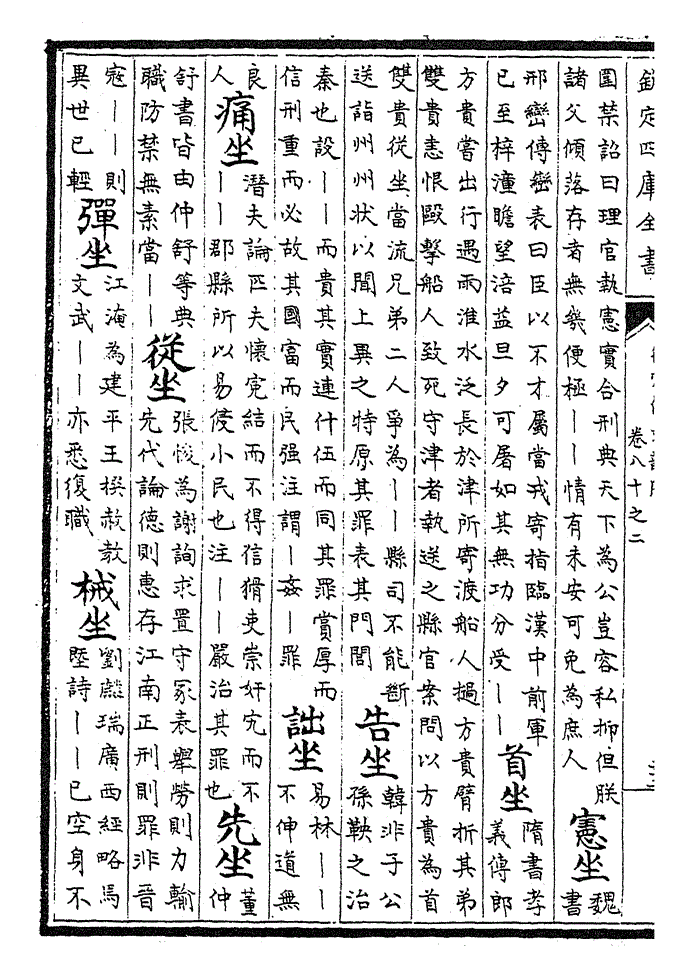 欽定四庫全書
卷八十之二
圍禁詔曰理官執憲實合刑典天下為公豈容私抑但朕
諸父傾落存者無幾便極丨丨情有未安可免為庶人
憲坐
魏
書
邢巒傳巒表曰臣以不才屬當戎寄指臨漢中前軍
已至梓潼瞻望涪益旦夕可屠如其無功分受丨丨
首坐
隋書孝
義傳郎
方貴嘗出行遇雨淮水泛長於津所寄渡船人撾方貴臂折其弟
雙貴恚恨毆擊船人致死守津者執送之縣官案問以方貴為首
雙貴從坐當流兄弟二人爭為丨丨縣司不能斷
送詣州州狀以聞上異之特原其罪表其門閭
告坐
韓非子公
孫鞅之治
秦也設丨丨而貴其實連什伍而同其罪賞厚而
信刑重而必故其國富而民强注謂丨姦丨罪
詘坐
易林丨丨
不伸道無
良
人
痛坐
潛夫論匹夫懷寃結而不得信猾吏崇奸宄而不
丨丨郡縣所以易侵小民也注丨丨嚴治其罪也
先坐
董
仲
舒書皆由仲舒等典
職防禁無素當丨丨
從坐
張悛為謝詢求置守冢表舉勞則力輸
先代論德則惠存江南正刑則罪非晉
寇丨丨則
異世已輕
彈坐
江淹為建平王赦教
文武丨丨亦悉復職
械坐
劉麟瑞廣西經略馬
塈詩丨丨已空身不